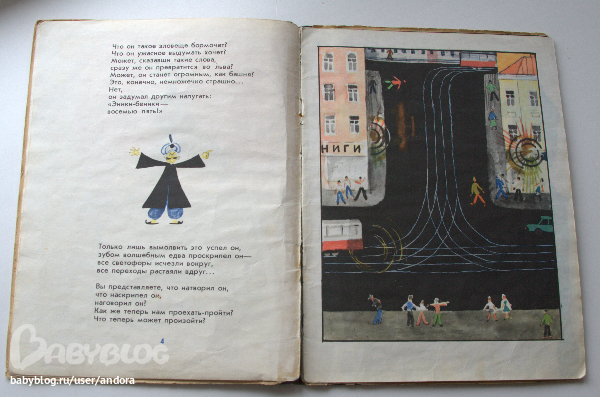 Что он такое зловеще бормочет?
Что он ужасное выдумать хочет?
Может, сказавши такие слова,
сразу же он превратится во льва?
Может, он станет огромным, как башня?
Это, конечно, немножечко страшно...
Нет,
он задумал другим напугать:
«Эники-беники—
восемью пять!»
Только лишь вымолвить это успел он,
зубом волшебным едва проскрипел он—
все светофоры исчезли вокруг,
все переходы растаяли вдруг...
Вы представляете, что натворил он,
что наскрипел он,
наговорил он?
Как же теперь нам проехать-пройти?
Что теперь может произойти?
4
НИГИ
BABYBLOG
babyblog.ru/user/andora